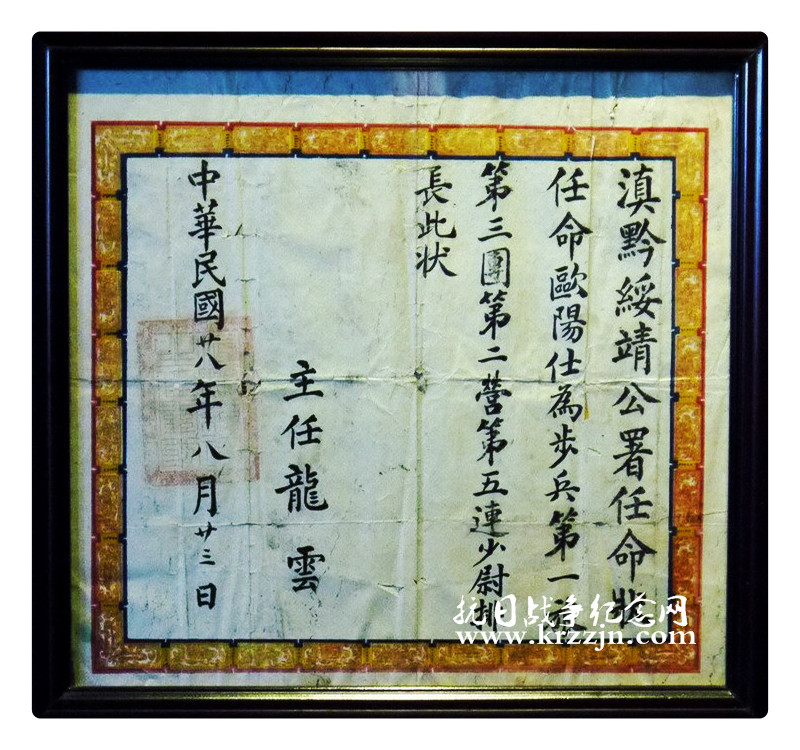 滇黔綏靖公署任命狀
任命歐陽仕為步兵第一
第三團第二營第五連少尉排
長此狀
主任龍雲
中華民國廿八年八月廿三日
抗日战争纪念网
www.krzzjn.com